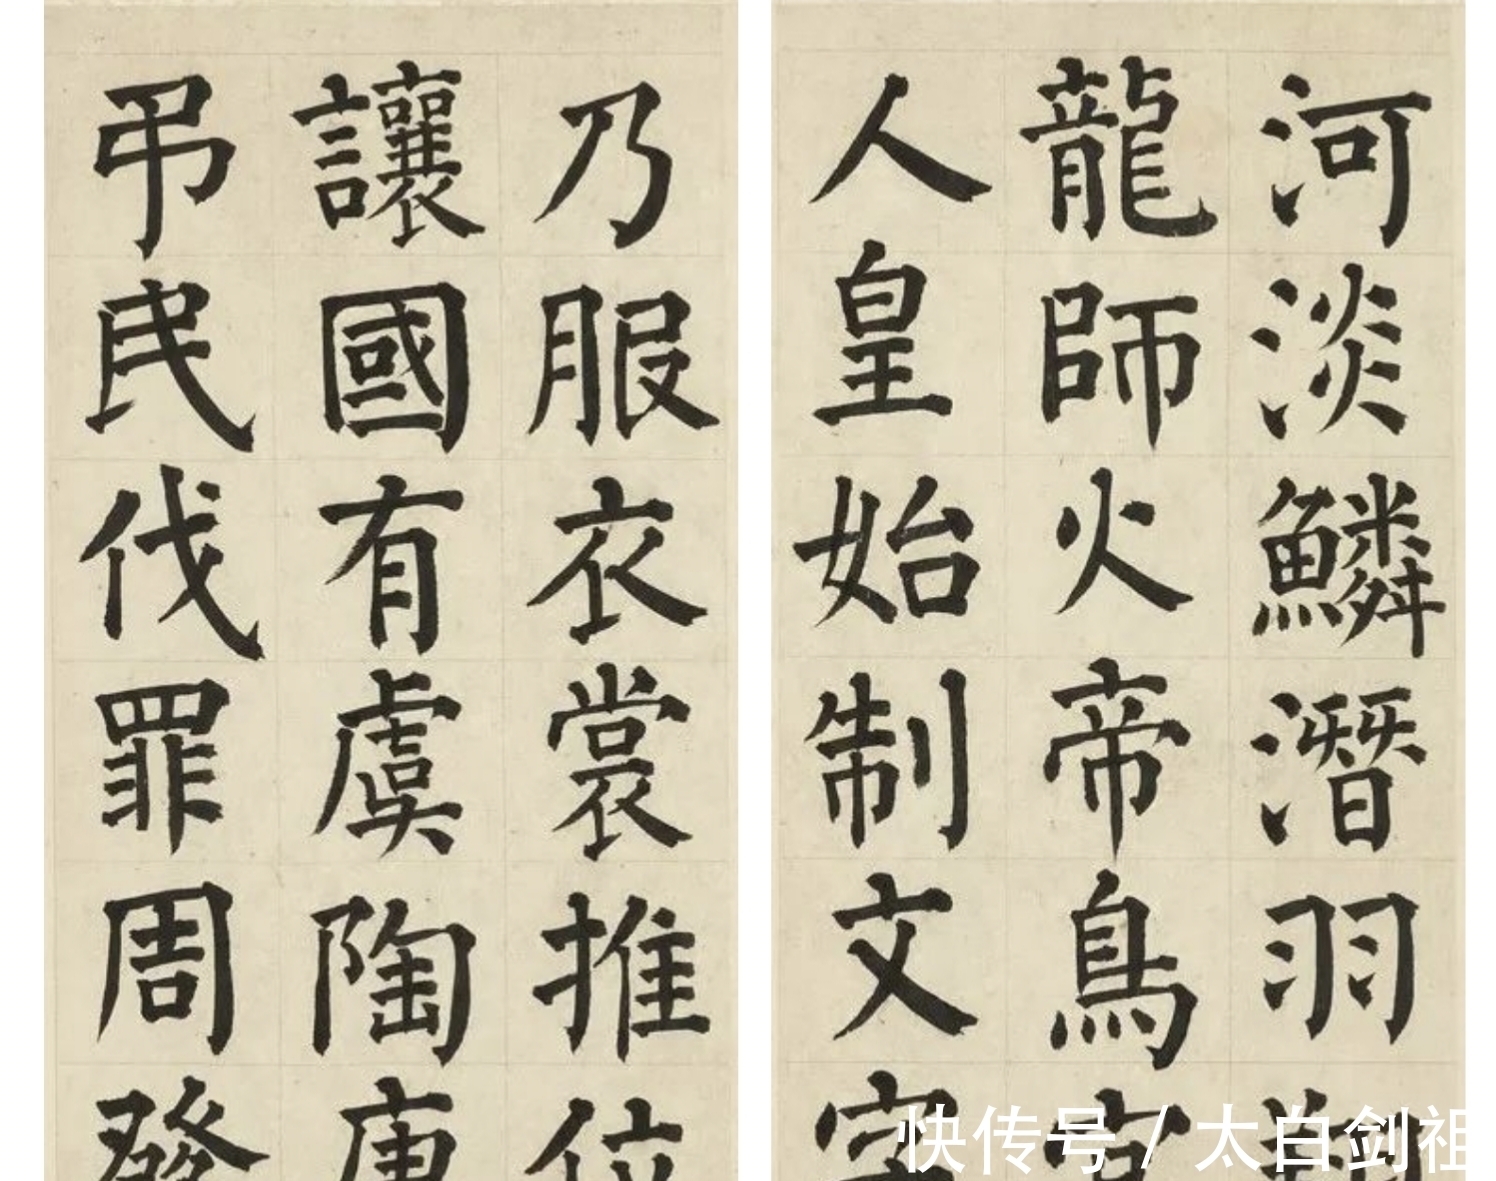 河淡鱗潛羽翔
龍師火帝鳥官
人皇始制文字
乃服衣裳推位
讓國有虞陶唐
弔民伐罪周發
快传号/太白剑祖